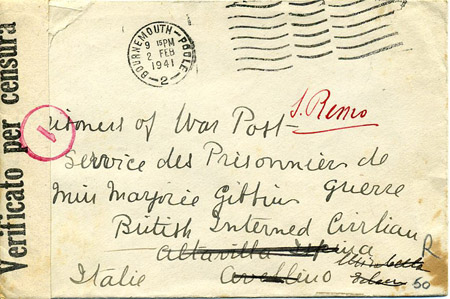 Verificato per censura
BOURNEMOUTH - POOLE
9 15 PM
2 FEB
1941
2
1
S. Remo
isoners of War Post
Service des Prisonniers de
Guerre
Miss Marjorie Gibbins
British Interned Civilian
Altavilla Irpina
Italie Avellino
R
50